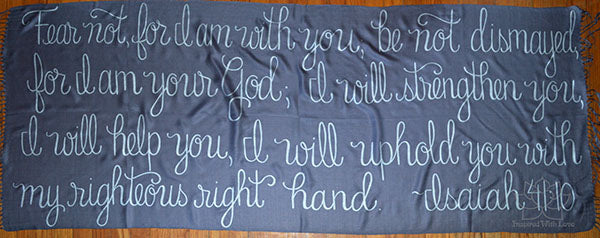 Fear not, for I am with you; be not dismayed,
for I am your God; I will strengthen you,
I will help you, I will uphold you with
my righteous right hand. ~Isaiah 41:10
Inspired With Love